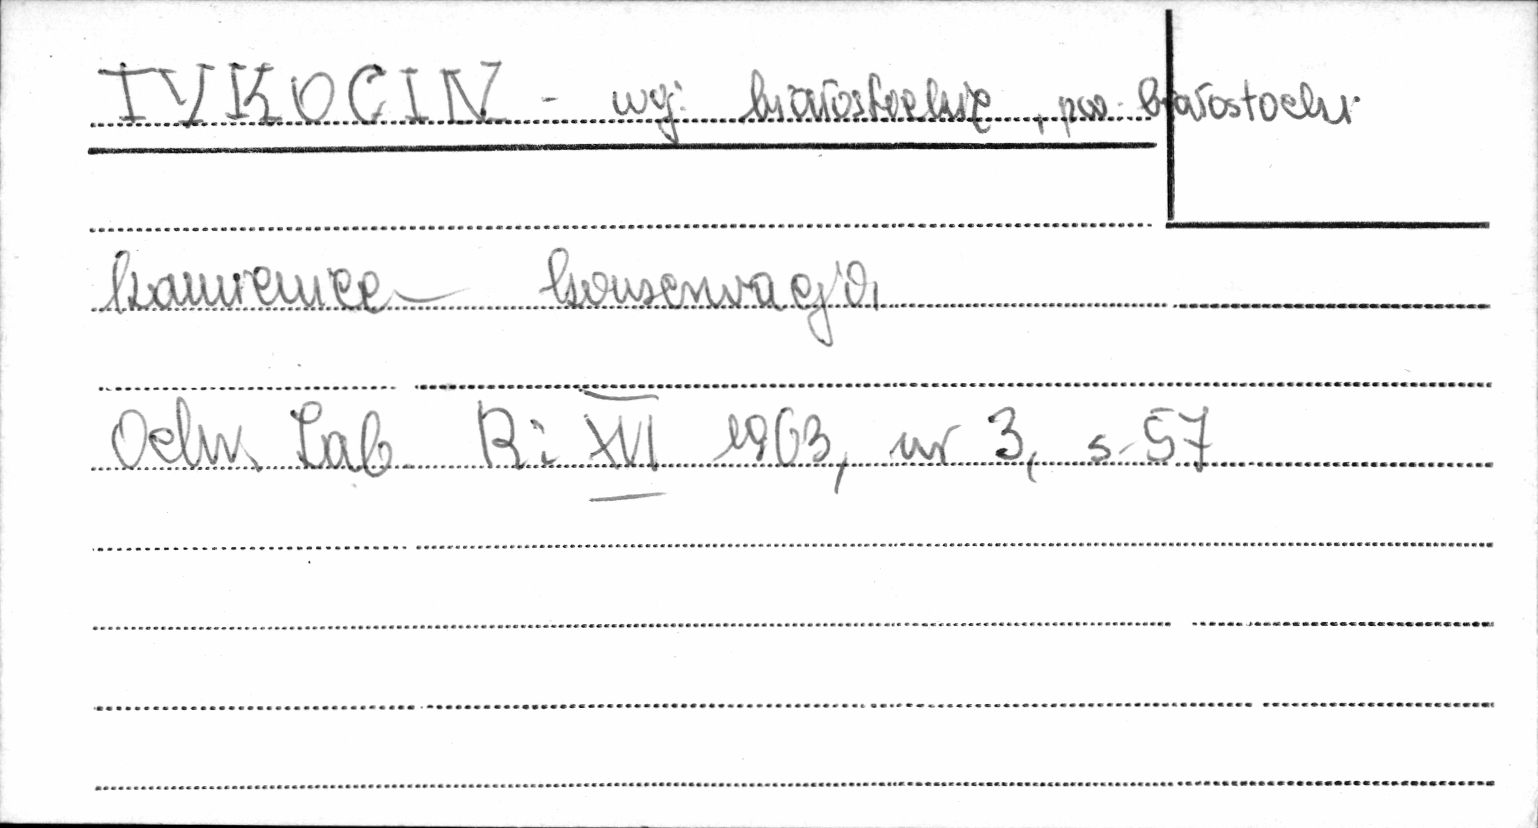 TYKOCIN - woj. białostockie, pow. białostocki
kamienice - konserwacja
Ochr. Zab. R. XVI 1963, nr 3, s. 57